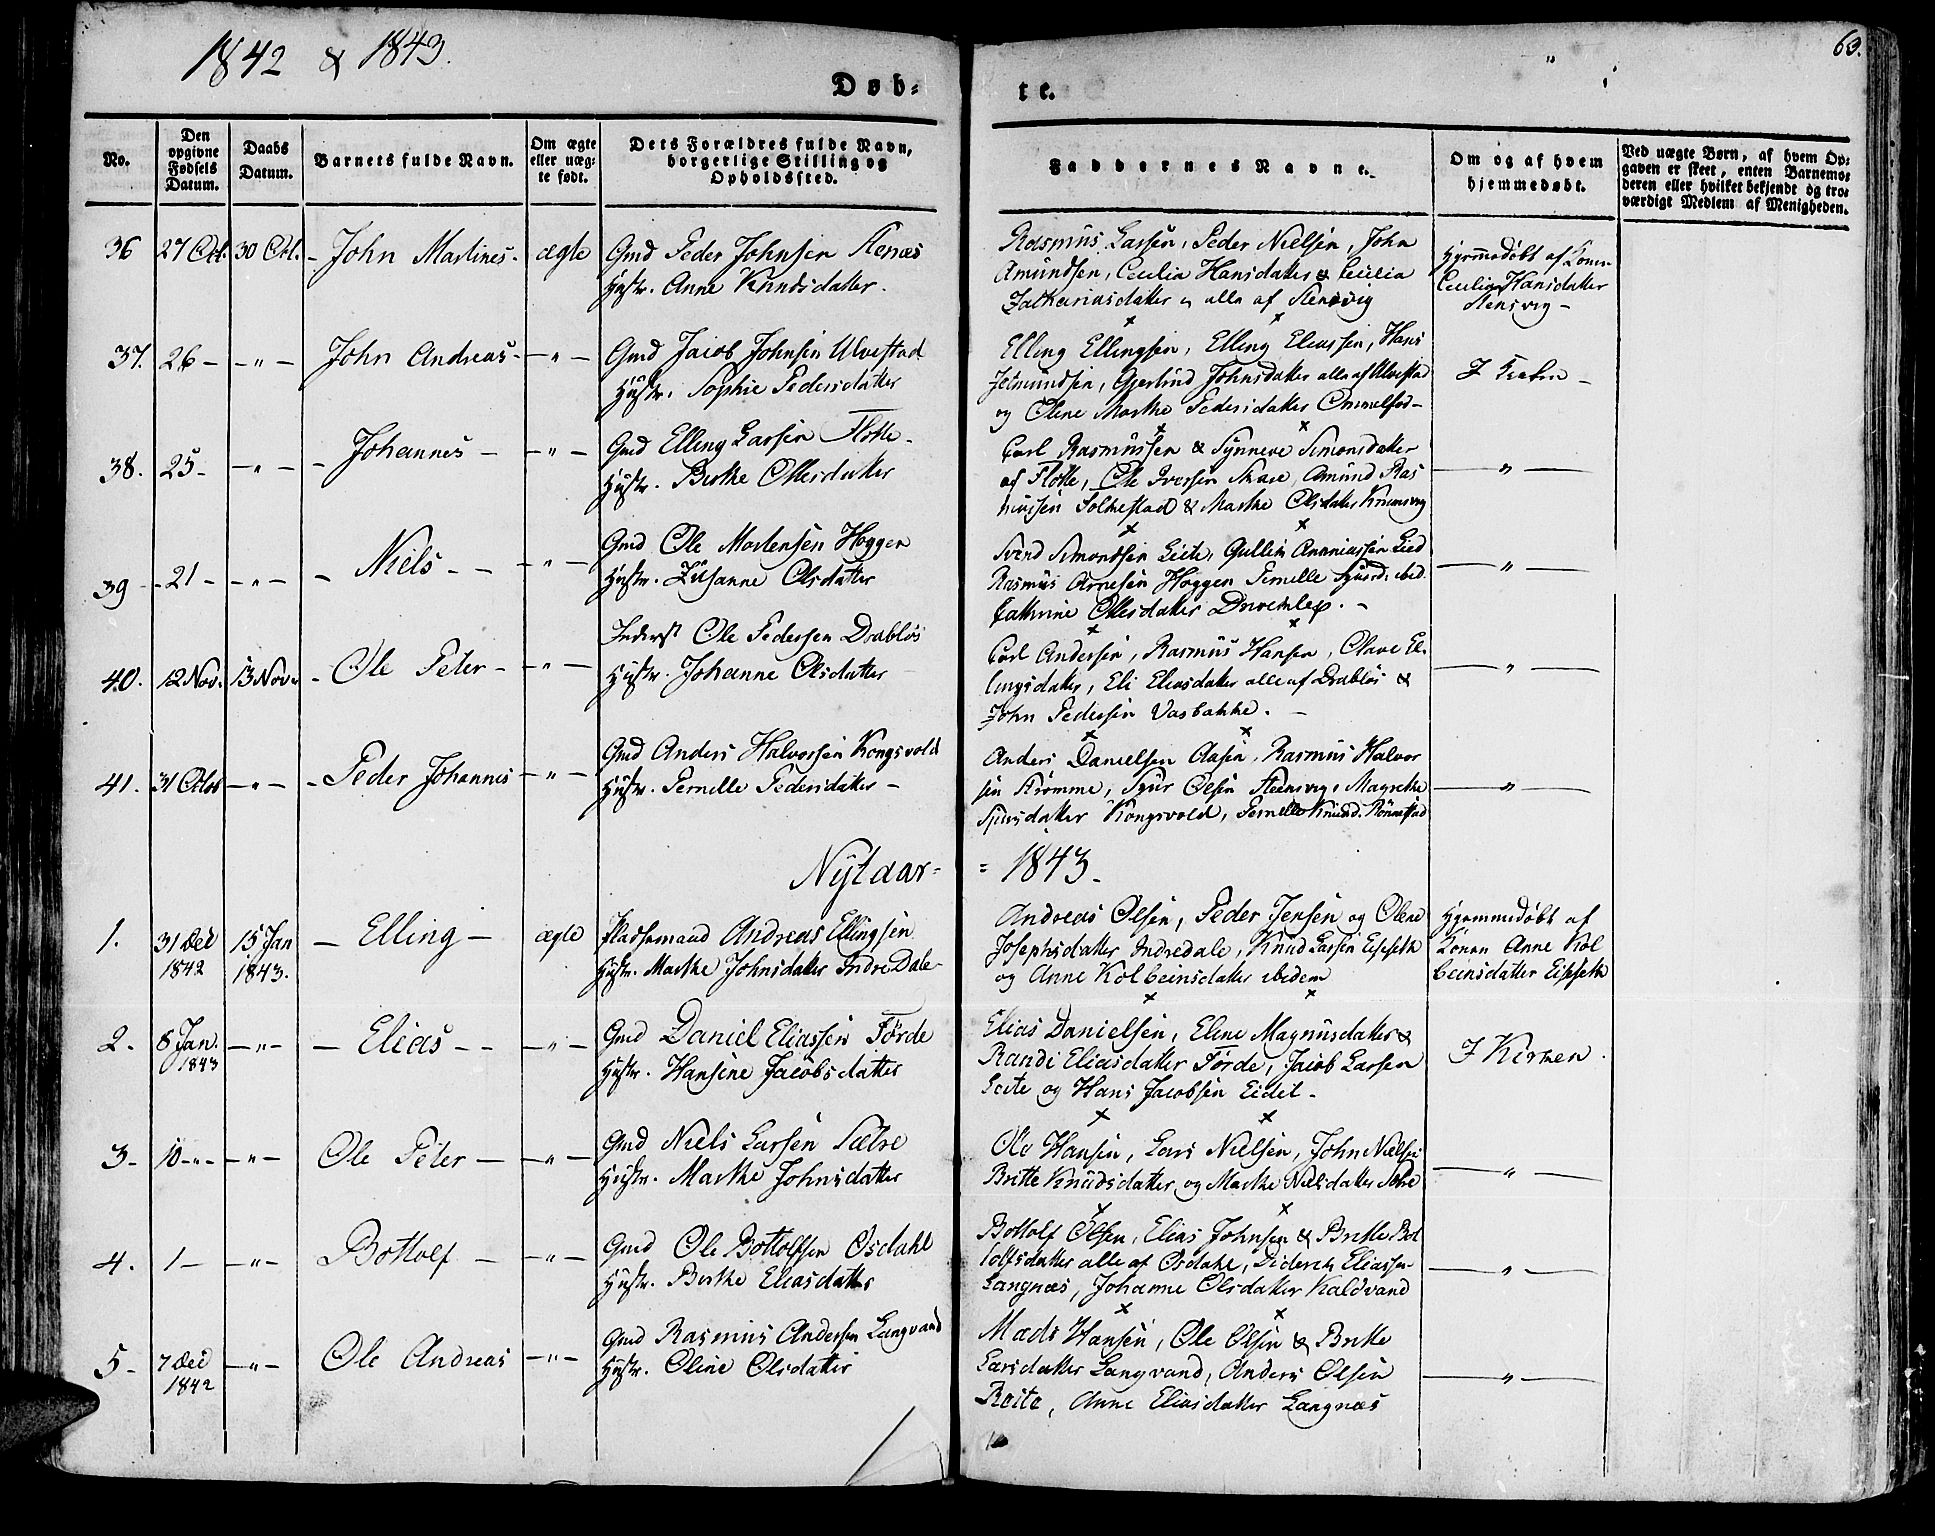 1842 & 1843.
Døb=
te.
63.
No.
Den opgivne Fødsels Datum.
Daabs Datum.
Barnets fulde Navn.
Om ægte eller uæg- te født.
Dets Forældres fulde Navn, borgerlige Stilling og Opholdssted.
Faddernes Navne.
Om og af hvem hjemmedøbt.
Ved uægte Børn, af hvem Op- gaven er skeet, enten Barnemo- deren eller hvilket bekjendt og tro- værdigt Medlem af Menigheden.
36 27 Oct. 30 Oct. - John Martines - ægte
Gmd Peder Johnsen Stenæs
Hustr. Anne Knudsdatter.
Rasmus Larsen, Peder Nielsen, John
Amundsen, Cecilia Hansdatter & Cecilia
Zachariasdatter, alle af Stensvig
Hjemmedøbt af Konen
Cecilia Hansdatter
Stensvig -
37. 26 - - " - John Andreas - - " -
Gmd Jacob Johnsen Ulvestad
Hustr. Sophie Pedersdatter
Elling Ellingsen, Elling Eliassen, Hans
Jetmundsen, Gjertrud Johnsdatter alle af Ulvestad
og Olene Marthe Pedersdatter Ommelfod -
I Kirken -
38. 25 - - " - - Johannes - - " -
Gmd Elling Larsen Flotte -
Hustr. Berthe Ollesdatter
Carl Rasmussen & Synneve Simonsdatter
af Flotte, Ole Iversen Skare, Amund Ras
mussen Solhestad & Marthe Olsdatter Krumsvig
- " -
39 - - 21 - - " - - Niels - - - " -
Gmd Ole Mortensen Heggen
Hustr. Zusanne Olsdatter
Svend Simondsen Leite, Gullik Annaniassen Lied
Rasmus Arnesen Heggen Pernille Sjurd. ibid.
Cathrine Ollesdatter -
- " -
40. 12 Nov. 13 Nov. - Ole Peter - - " -
Inderst Ole Pedersen Drabløs
Hustr. Johanne Olsdatter
Carl Andersen, Rasmus Hansen, Olave El-
lingsdatter, Eli Eliasdatter alle af Drabløs &
John Pedersen Vasbakke. -
- " -
41. 31 Octob - " - - Peder Johannes - " -
Gmd Anders Halvorsen Kongsvold
Hustr. Pernille Pedersdatter -
Anders Danielsen Aasen, Rasmus Halvor
sen Krømme, Sjur Olsen Steensvig, Magrethe
Sjursdatter Kongsvold, Pernille Knud. Rønnestad
- " -
Nÿtaar- = 1843 -
1. 31 Dec 1842 15 Jan 1843. - Elling - ægte
Pladsemand Andreas Ellingsen
Hustr. Marthe Johnsdatter Indre Dale
Andreas Olsen, Peder Jensen og Olene
Josephsdatter Indredale, Knud Larsen Eipseth
og Anne Kolbeinsdatter ibidem
Hjemmedøbt af
Konen Anne Kol
beinsdatter Eipseth
2. 8 Jan. 1843 - " - - Elias - - - " -
Gmd Daniel Eliassen Førde
Hustr. Hansine Jacobsdatter
Elias Danielsen, Eline Magnusdatter &
Randi Eliasdatter Førde, Jacob Larsen
Leite og Hans Jacobsen Eidet -
I Kirken.
3 - 10 - " - - " - Ole Peter - - " -
Gmd Niels Larsen Sætre
Hustr. Marthe Johnsdatter
Ole Hansen, Lars Nielsen, John Nielsen
Britte Knudsdatter og Marthe Nielsdatter Sætre
- " -
4. 1 - - " - Bottolf - - " -
Gmd Ole Bottolfsen Osdahl
Hustr. Berthe Eliasdatter
Bottolf Olsen, Elias Johnsen & Britte Bot
tolfsdatter alle af Osdahl, Diderik Eliassen
Langnæs, Johanne Olsdatter Kaldvand
- " -
5 - 7 Dec 1842 - " - Ole Andreas - " -
Gmd Rasmus Andersen Langvand
Hustr. Oline Olsdatter
Mads Hansen, Ole Olsen & Britte
Larsdatter Langvand, Anders Olsen
Reite, Anne Eliasdatter Langnæs
- " -